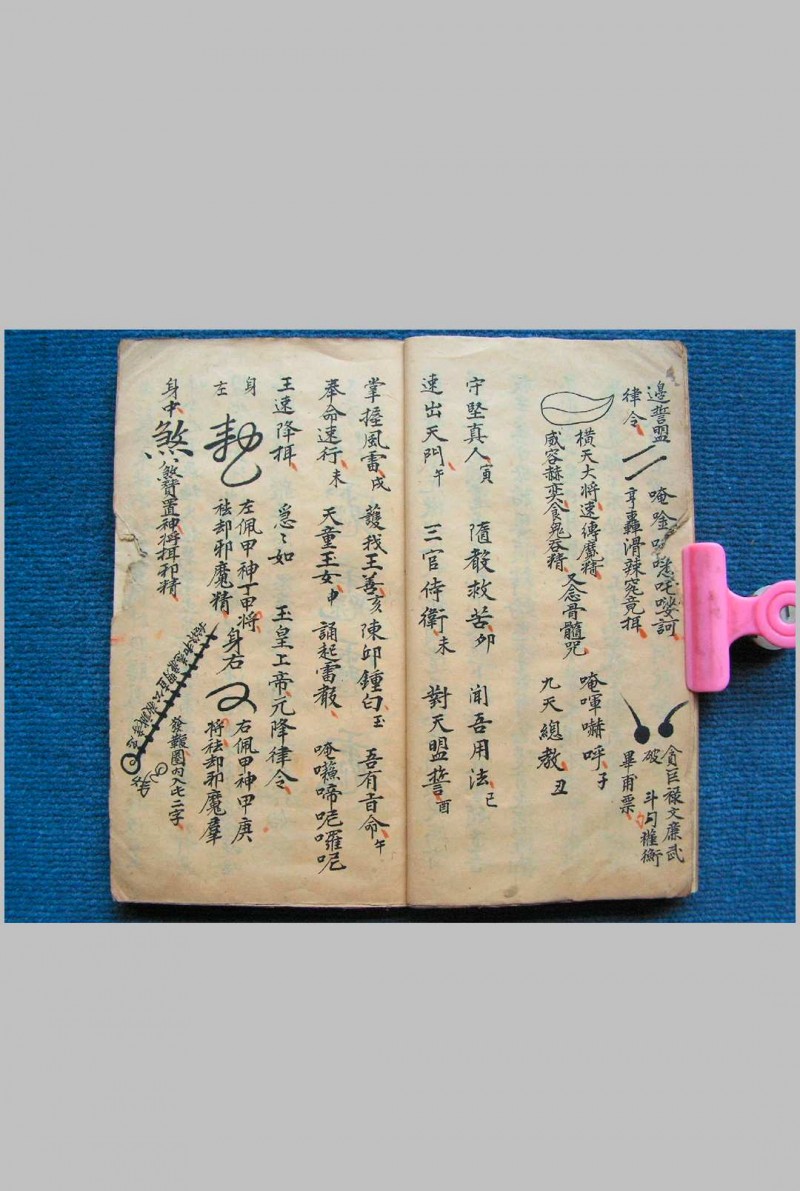 邊誓盟
律令
唵唫吽
吒㗲訶
亨轟滑辣窕竟挕
貪巨祿文廉武
破
斗勺權衡
畢甫票
橫天大將速縛魔精
威容赫奕食鬼吞精
又念骨髓咒
唵㖇嚇呼子
九天總教丑
守堅真人寅 隨聲救苦卯 聞吾用法巳
速出天門午 三官侍衛未 對天盟誓酉
掌握風雷戌 護我王善亥 陳邱鍾白玉 吾有音命午
奉命速行未 天童玉女申 誦起雷聲 唵㘓啼呢囉呢
王速降挕 急〻如 玉皇上帝元降律令
身
左
左佩甲神丁甲將
祛却邪魔精
身右
右佩甲神甲庚
將祛却邪魔羣
身中
煞
煞贊置神將挕邪精
發報圈內入七二字